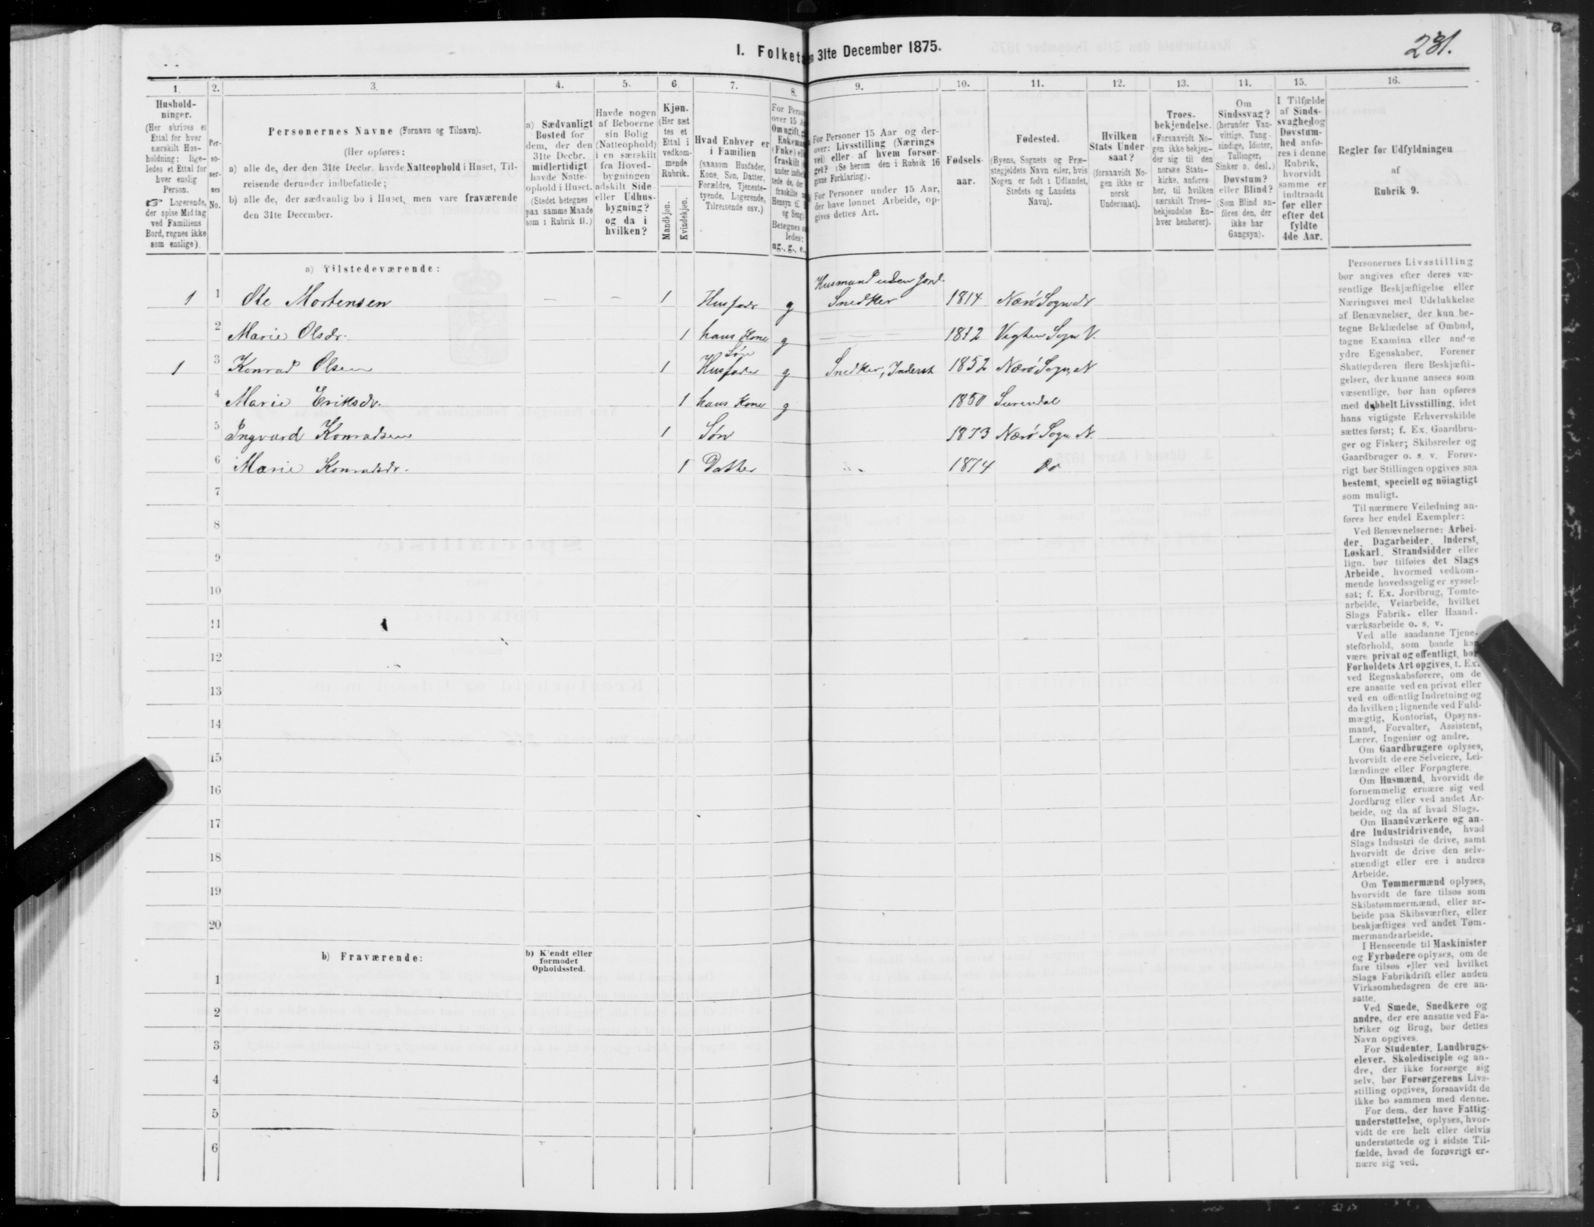 I. Folket
n 31te December 1875.
231.
1. 2. 3. 4. 5. 6. 7. 8. 9. 10. 11. 12. 13. 14. 15. 16.
Hushold-
ninger.
(Her skrives et
Ettal for hver
særskilt Hus-
holdning; lige-
ledes et Ettal for
hver enslig
Person.
Logerende,
der spise Middag
ved Familiens
Bord, regnes ikke
som enslige).
Per-
so-
ner-
nes
No.
Personernes Navne (Fornavn og Tilnavn).
(Her opføres:
a) alle de, der den 31te Decbr. havde Natteophold i Huset, Til-
reisende derunder indbefattede;
b) alle de, der sædvanlig bo i Huset, men vare fraværende
den 31te December.
a) Sædvanligt
Bosted for
dem, der den
31te Decbr.
midlertidigt
havde Natte-
ophold i Huset.
(Stedet betegnes
paa samme Maade
som i Rubrik 11.)
Havde nogen
af Beboerne
sin Bolig
(Natteophold)
i en særskilt
fra Hoved-
bygningen
adskilt Side-
eller Udhus-
bygning?
og da i
hvilken?
Kjøn.
(Her sæt
tes et
Ettal i
vedkom-
mende
Rubrik.
Mandkjøn.
Kvindekjøn.
Hvad Enhver er
i Familien
(saasom Husfader,
Kone, Søn, Datter,
Forældre, Tjeneste-
tyende, Logerende,
Tilreisende osv.)
For Personer 15 Aar og der-
over: Livsstilling (Nærings
vei) eller af hvem forsør-
get? (Se herom den i Rubrik 16
givne Forklaring).
For Personer under 15 Aar,
der have lønnet Arbeide, op-
gives dettes Art.
Fødsels-
aar.
Fødested.
(Byens, Sognets og Præ-
stegjeldets Navn eller, hvis
Nogen er født i Udlandet,
Stedets og Landets
Navn).
Hvilken
Stats Under-
saat?
(forsaavidt No-
gen ikke er
norsk
Undersaat).
Troes-
bekjendelse.
(Forsaavidt No-
gen ikke bekjen-
der sig til den
norske Stats-
kirke, anføres
her, til hvilken
særskilt Troes-
bekjendelse En-
hver henhører).
Om
Sindssvag?
(herunder Van-
vittige, Tung-
sindige, Idioter,
Tullinger,
Sinker o. desl.)
Døvstum?
eller Blind?
(Som Blind an-
føres den, der
ikke har
Gangsyn).
I Tilfælde
af Sinds-
svaghed og
Døvstum-
hed anfø-
res i denne
Rubrik,
hvorvidt
samme er
indtraadt
før eller
efter det
fyldte
4de Aar.
Regler før Udfyldningen
af
Rubrik 9.
a) Tilstedeværende:
Husmand uden Jord.
1 1 Ole Mortensen — — 1 Husfader g Snedker 1814 Nærø Sogn
2 Marie Olsdr. 1 hans Kone g 1812 Sogn V.
Søn
1 3 Konrad Olsen 1 Husfader g Snedker, Inderst 1852 Nærø Sogn, N
4 Marie Eriksdr. 1 hans Kone g 1850 Surendal
5 Ingvard Konradsen 1 Søn 1873 Nærø Sogn N.
6 Marie Konradsdr. 1 Datter 1874 Do
7
8
9
10
11
12
13
14
15
16
17
18
19
20
b) Fraværende:
b) Kjendt eller
formodet
Opholdssted.
1
2
3
4
5
6
Personernes Livsstilling
bør angives efter deres væ-
sentlige Beskjæftigelse eller
Næringsvei med Udelukkelse
af Benævnelser, der kun be-
tegne Beklædelse af Ombud,
tagne Examina eller andre
ydre Egenskaber. Forener
Skatteyderen flere Beskjæfti-
gelser, der kunne ansees som
væsentlige, bør han opføres
med dobbelt Livsstilling, idet
hans vigtigste Erhvervskilde
sættes først; f. Ex. Gaardbru-
ger og Fisker; Skibsreder og
Gaardbruger o. s. v. Forøv-
rigt bør Stillingen opgives saa
bestemt, specielt og nöiagtigt
som muligt.
Til nærmere Veiledning an-
føres her endel Exempler:
Ved Benævnelserne: Arbei-
der, Dagarbeider, Inderst,
Løskarl, Strandsidder eller
lign. bør tilføies det Slags
Arbeide, hvormed vedkom-
mende hovedsagelig er syssel-
sat; f. Ex. Jordbrug, Tomte-
arbeide, Veiarbeide, hvilket
Slags Fabrik- eller Haand-
værksarbeide o. s. v.
Ved alle saadanne Tjene-
steforhold, som baade kan
være privat og offentligt, bør
Forholdets Art opgives, t. Ex.
ved Regnskabsførere, om de
ere ansatte ved en privat eller
ved en offentlig Indretning og
da hvilken; lignende ved Fuld-
mægtig, Kontorist, Opsyns-
mand, Forvalter, Assistent,
Lærer, Ingeniør og andre.
Om Gaardbrugere oplyses,
hvorvidt de ere Selveiere, Lei-
lændinge eller Forpagtere.
Om Husmænd, hvorvidt de
fornemmelig ernære sig ved
Jordbrug eller ved andet Ar-
beide, og da af hvad Slags.
Om Haandværkere og an-
dre Industridrivende, hvad
Slags Industri de drive, samt
hvorvidt de drive den selv-
stændigt eller ere i andres
Arbeide.
Om Tømmermænd oplyses,
hvorvidt de fare tilsøs som
Skibstømmermænd, eller ar-
beide paa Skibsværfter, eller
beskjæftiges ved andet Tøm-
mermandsarbeide.
I Henseende til Maskinister
og Fyrbødere oplyses, om de
fare tilsøs eller ved hvilket
Slags Fabrikdrift eller anden
Virksomhedsgren de ere an-
satte.
Ved Smede, Snedkere og
andre, der ere ansatte ved Fa-
briker og Brug, bør dettes
Navn opgives.
For Studenter, Landbrugs-
elever, Skoledisciple og an-
dre, der ikke forsørge sig
selv, bør Forsørgerens Livs-
stilling opgives, forsaavidt de
ikke bo sammen med denne.
For dem, der have Fattig-
understøttelse, oplyses, hvor-
vidt de ere helt eller delvis
understøttede og i sidste Til-
fælde, hvad de forøvrigt er-
nære sig ved.